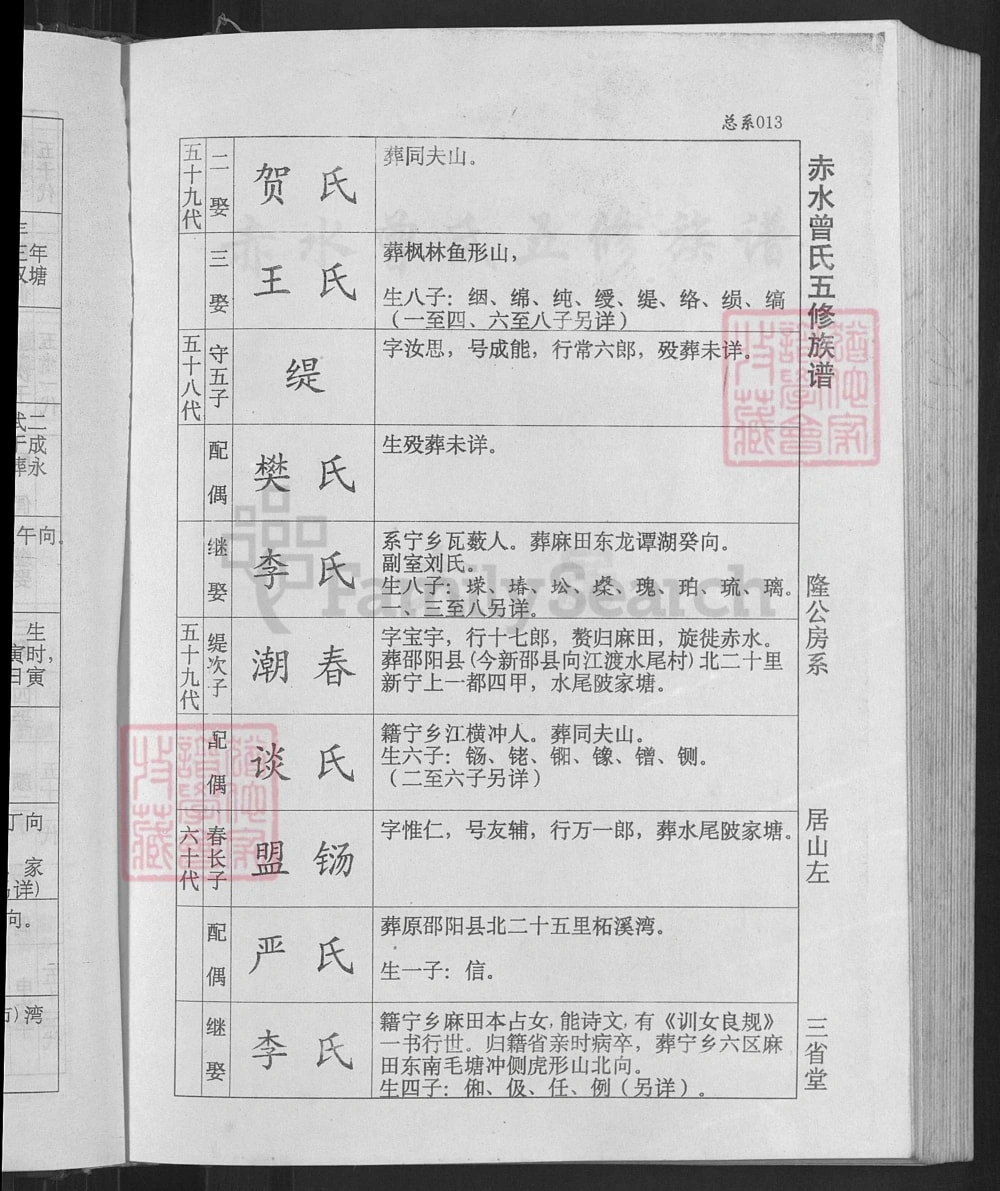 总系013
赤水曾氏五修族谱
隆公房系
居山左
三省堂
五十九代
二娶
贺氏
葬同夫山。
三娶
王氏
葬枫林鱼形山，
生八子：絪、绵、纯、绶、缇、络、缋、缟
（一至四、六至八子另详）
五十八代
守五子
缇
字汝思，号成能，行常六郎，殁葬未详。
配偶
樊氏
生殁葬未详。
继娶
李氏
系宁乡瓦薮人。葬麻田东龙谭湖癸向。
副室刘氏。
生八子：瑮、瑃、玜、璨、瑰、珀、琉、璃。
一、三至八另详。
五十九代
缇次子
潮春
字宝宇，行十七郎，赘归麻田，旋徙赤水。
葬邵阳县(今新邵县向江渡水尾村)北二十里
新宁上一都四甲，水尾陂家塘。
配偶
谈氏
籍宁乡江横冲人。葬同夫山。
生六子：钖、铑、铏、镓、镨、铡。
（二至六子另详）
六十代
春长子
盟钖
字惟仁，号友辅，行万一郎，葬水尾陂家塘。
配偶
严氏
葬原邵阳县北二十五里柘溪湾。
生一子：信。
继娶
李氏
籍宁乡麻田本占女，能诗文，有《训女良规》
一书行世。归籍省亲时病卒，葬宁乡六区麻
田东南毛塘冲侧虎形山北向。
生四子：俰、伋、任、例（另详）。
FamilySearch
年
塘
二
成
永
午向。
生
寅时，
日寅
丁向
家
详)
向。
湾